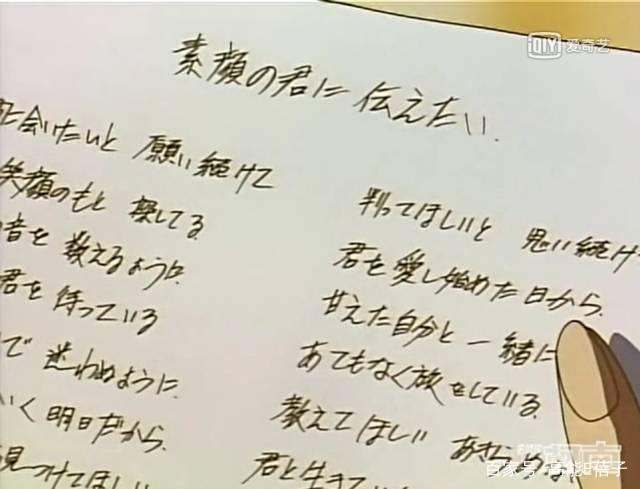 iQIYI 爱奇艺
素顔の君に伝えたい
に会いたいと 願い続けて
笑顔のもと 探してる
音を 数えるように
君を 待っている
で 迷わぬように
いく 明日だから
見つけてほしい
判ってほしいと 思い続け
君を愛し始めた日から
甘えた自分と 一緒に
あてもなく旅をしている
教えてほしい あきら
君と生きてい
百家号